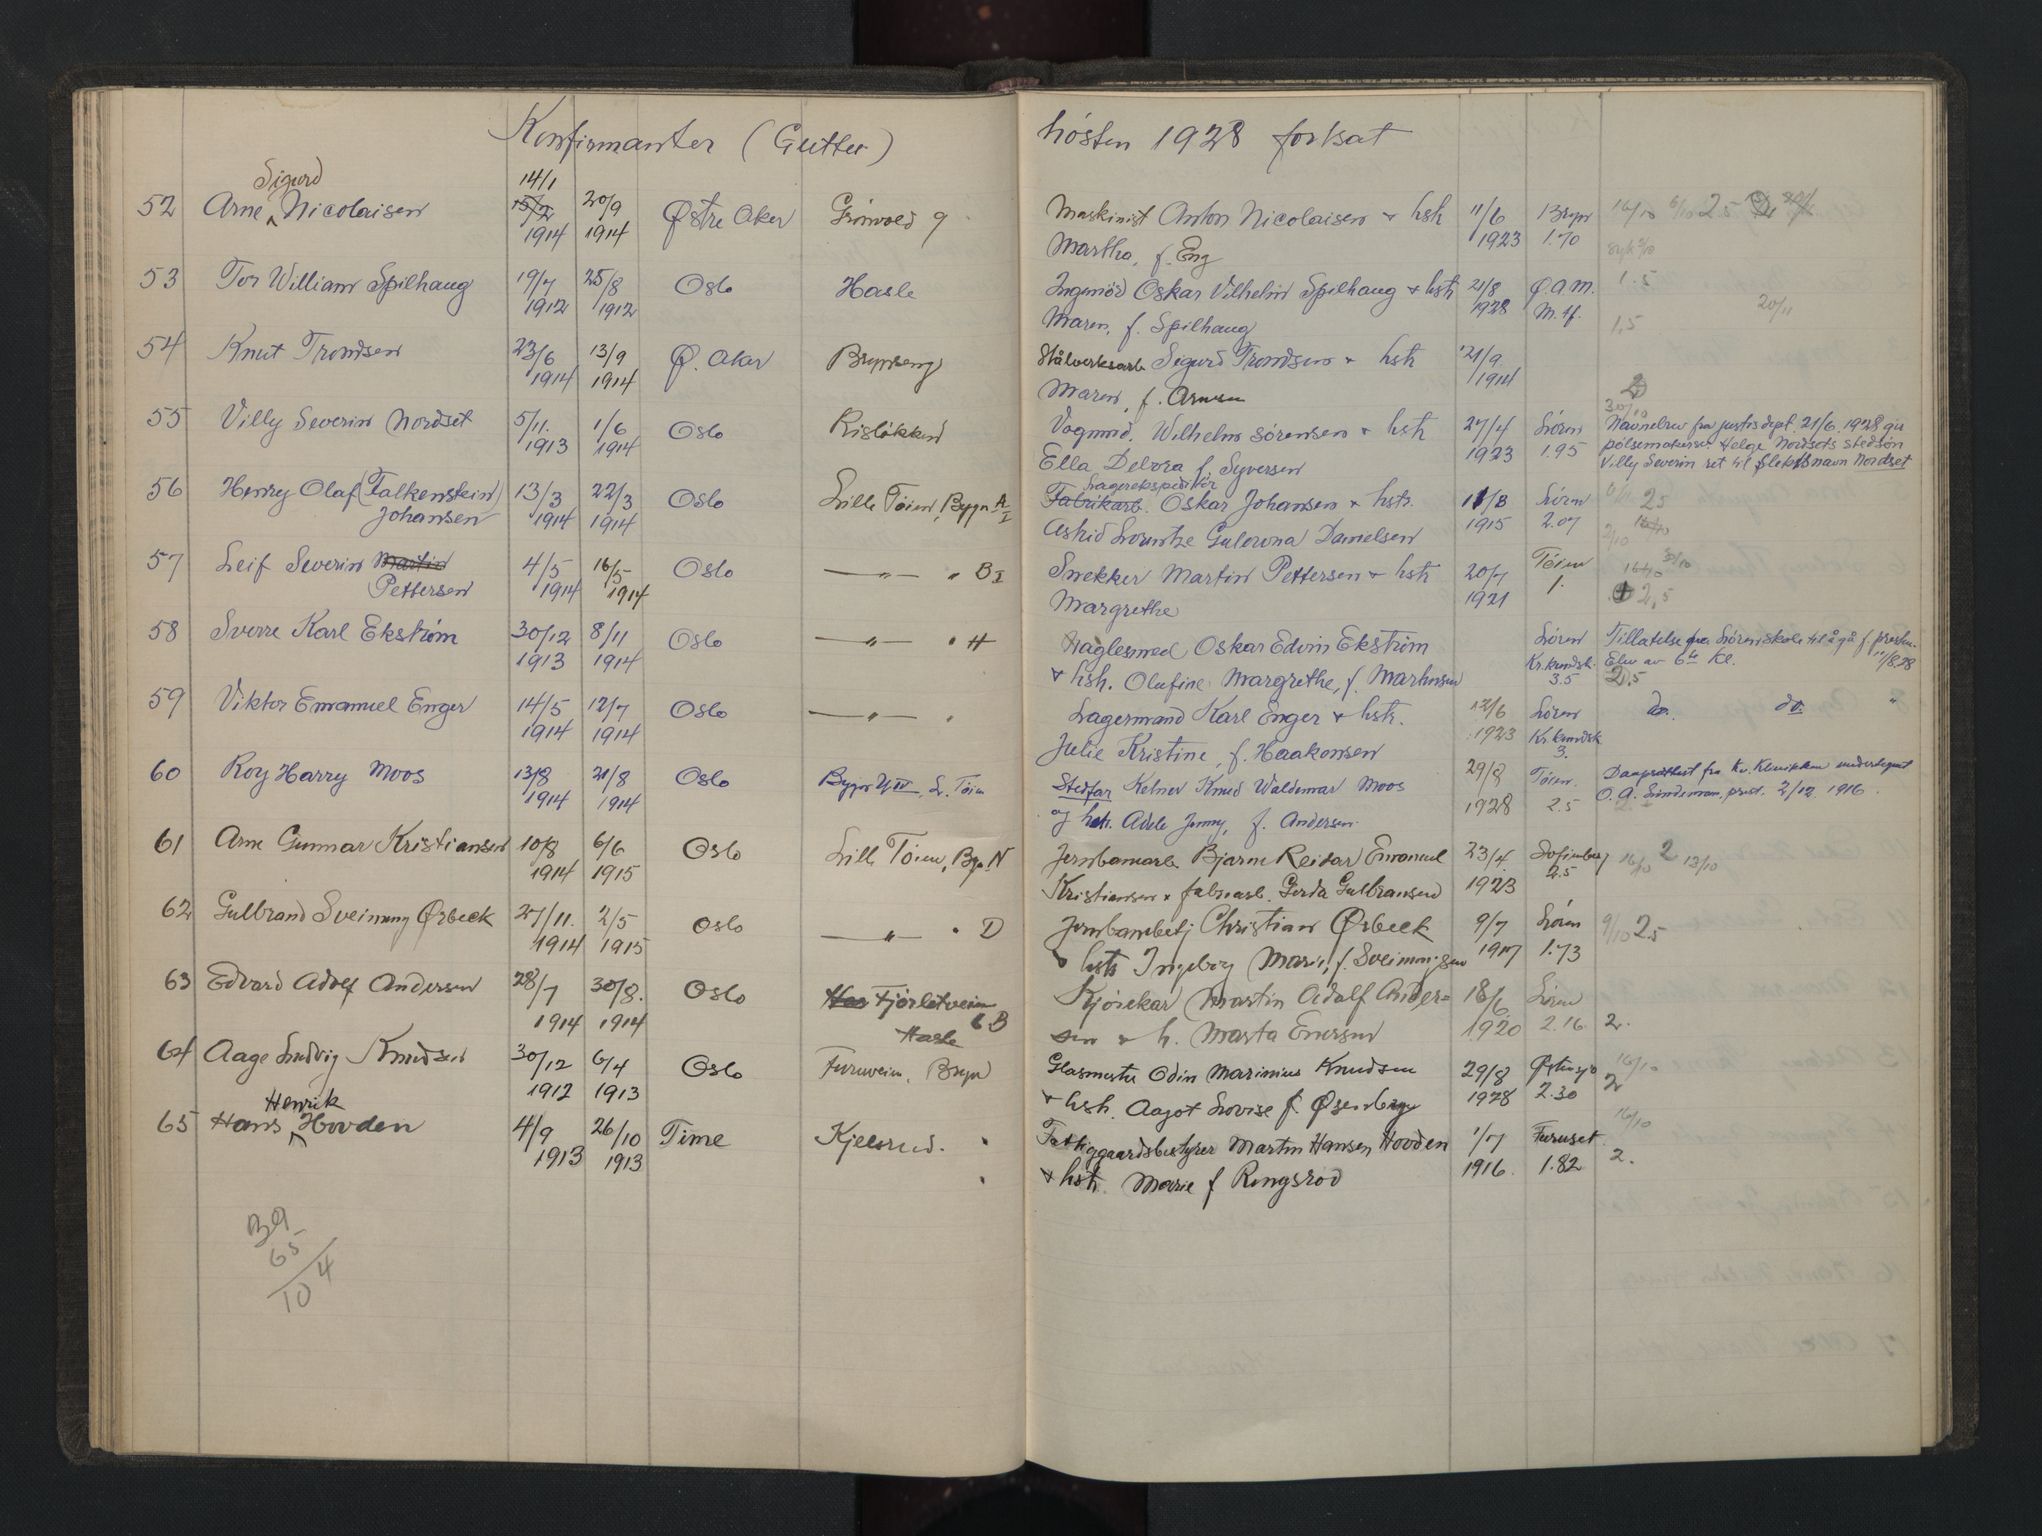 Konfirmanter (Gutter) høsten 1928 fortsat
Sigurd 14/1
52 Arne Nicolaisen 15/2 20/9 Østre Aker 9 Maskinist Anton Nicolaisen + hstr 11/6 Bryn 16/10 6/10 2.5
1914 1914 Martha, f. Eng 1923 1.70
53 Tor William Spilhaug 19/7 25/8 Oslo Hasle Ingeniør Oskar Vilhelm Spilhaug + hstr 21/8 Ø.A.M. 1.5
1912 1912 Maren, f. Spilhaug 1928 M. tf. 1,5 20/11
54 Knut Trondsen 23/6 13/9 Ø. Aker Brynseng Stålverksarb. Sigurd Trondsen + hstr 21/9
1914 1914 Maren, f. Arnesen 1914 2
30/10
55 Villy Severin Nordset 5/11. 1/6 Oslo Risløkken Vognmd. Wilhelm Sørensen + hstr 27/4 Løren Navnebrev fra justisdept. 21/6. 1928 gir
1913 1914 Ella Debora f. Syversen 1923 1.95 pølsemaker Helge Nordsets stedsøn
Villy Severin ret til slektsnavn Nordset
Lagerekspeditør
56 Henry Olaf (Falkenstein) 13/3 22/3 Oslo Lille Tøien, Bygn. A I Fabrikarb. Oskar Johansen + hstr. 11/8 Løren 2.5
Johansen 1914 1914 Astrid Lorentze Gulovna Danielsen 1915 2.07 2/10
57 Leif Severin Martin 4/5 16/5 Oslo —"— " B I Snekker Martin Pettersen + hstr 20/7 Tøien 16/10 30/10
Pettersen 1914 1914 Margrethe 1921 1. 2,5
58 Sverre Karl Ekstrøm 30/12 8/11 Oslo —"— " H Naglesmed Oskar Edvin Ekstrøm Løren Tillatelse fra Løren skole til å gå f. presten.
1913 1914 + hstr. Olufine Margrethe, f. Martinsen Kr.kundsk. 3.5 Elev av 6te kl. 11/8.28
2.5
59 Viktor Emanuel Enger 14/5 12/7 Oslo —"— " Lagermand Karl Enger + hstr. 12/6 Løren do. do. "
1914 1914 Julie Kristine, f. Haakonsen 1923 Kr.kundsk 3.
60 Roy Harry Moos 13/8 21/8 Oslo Bygn IV L. Tøien Stedfar Kelner Knud Waldemar Moos 29/8 Tøien. Daapsattest fra Kv. Klinikken undertegnet
1914 1914 og hstr. Adele Jenny, f. Andersen 1928 2.5 O. A. Lindeman, prest. 2/12. 1916.
61 Arne Gunnar Kristiansen 10/8 6/6 Oslo Lille Tøien, Bygn N Jernbanearb. Bjarne Reidar Emanuel 23/4 Sofienberg 16/10 2 13/10
1914 1915 Kristiansen + fabrikarb. Gerda Gulbransen 1923 2.5
62 Gulbrand Sveinung Ørbeck 27/11. 2/5 Oslo —"— " D Jernbanebetj Christian Ørbeck 9/7 Løren 9/10 2.5
1914 1915 + hstr Ingeborg Marie, f. Sveinungsen 1917 1.73
63 Edvard Adolf Andersen 28/7 30/8. Oslo Has Fjørlitveien Kjørekar Martin Adolf Ander= 18/6 Løren
1914 1914 6 B Hasle sen + h. Marta Enersen 1920 2.16 2.
64 Aage Ludvig Knudsen 30/12 6/4 Oslo Furuveien, Bryn Glasmester Odin Marinius Knudsen 29/8 Østensjø 16/10
1912 1913 + hstr. Aagot Lovise f. Øsenberg 1928 2.30 2
Henrik
65 Hans Hovden 4/9 26/10 Time Kjelsrud. Fattiggaardsbestyrer Martin Hansen Hovden 1/7 Furuset 16/10
1913 1913 + hstr. Marie f Ringsrød 1916. 1.82 2.
39
65
104